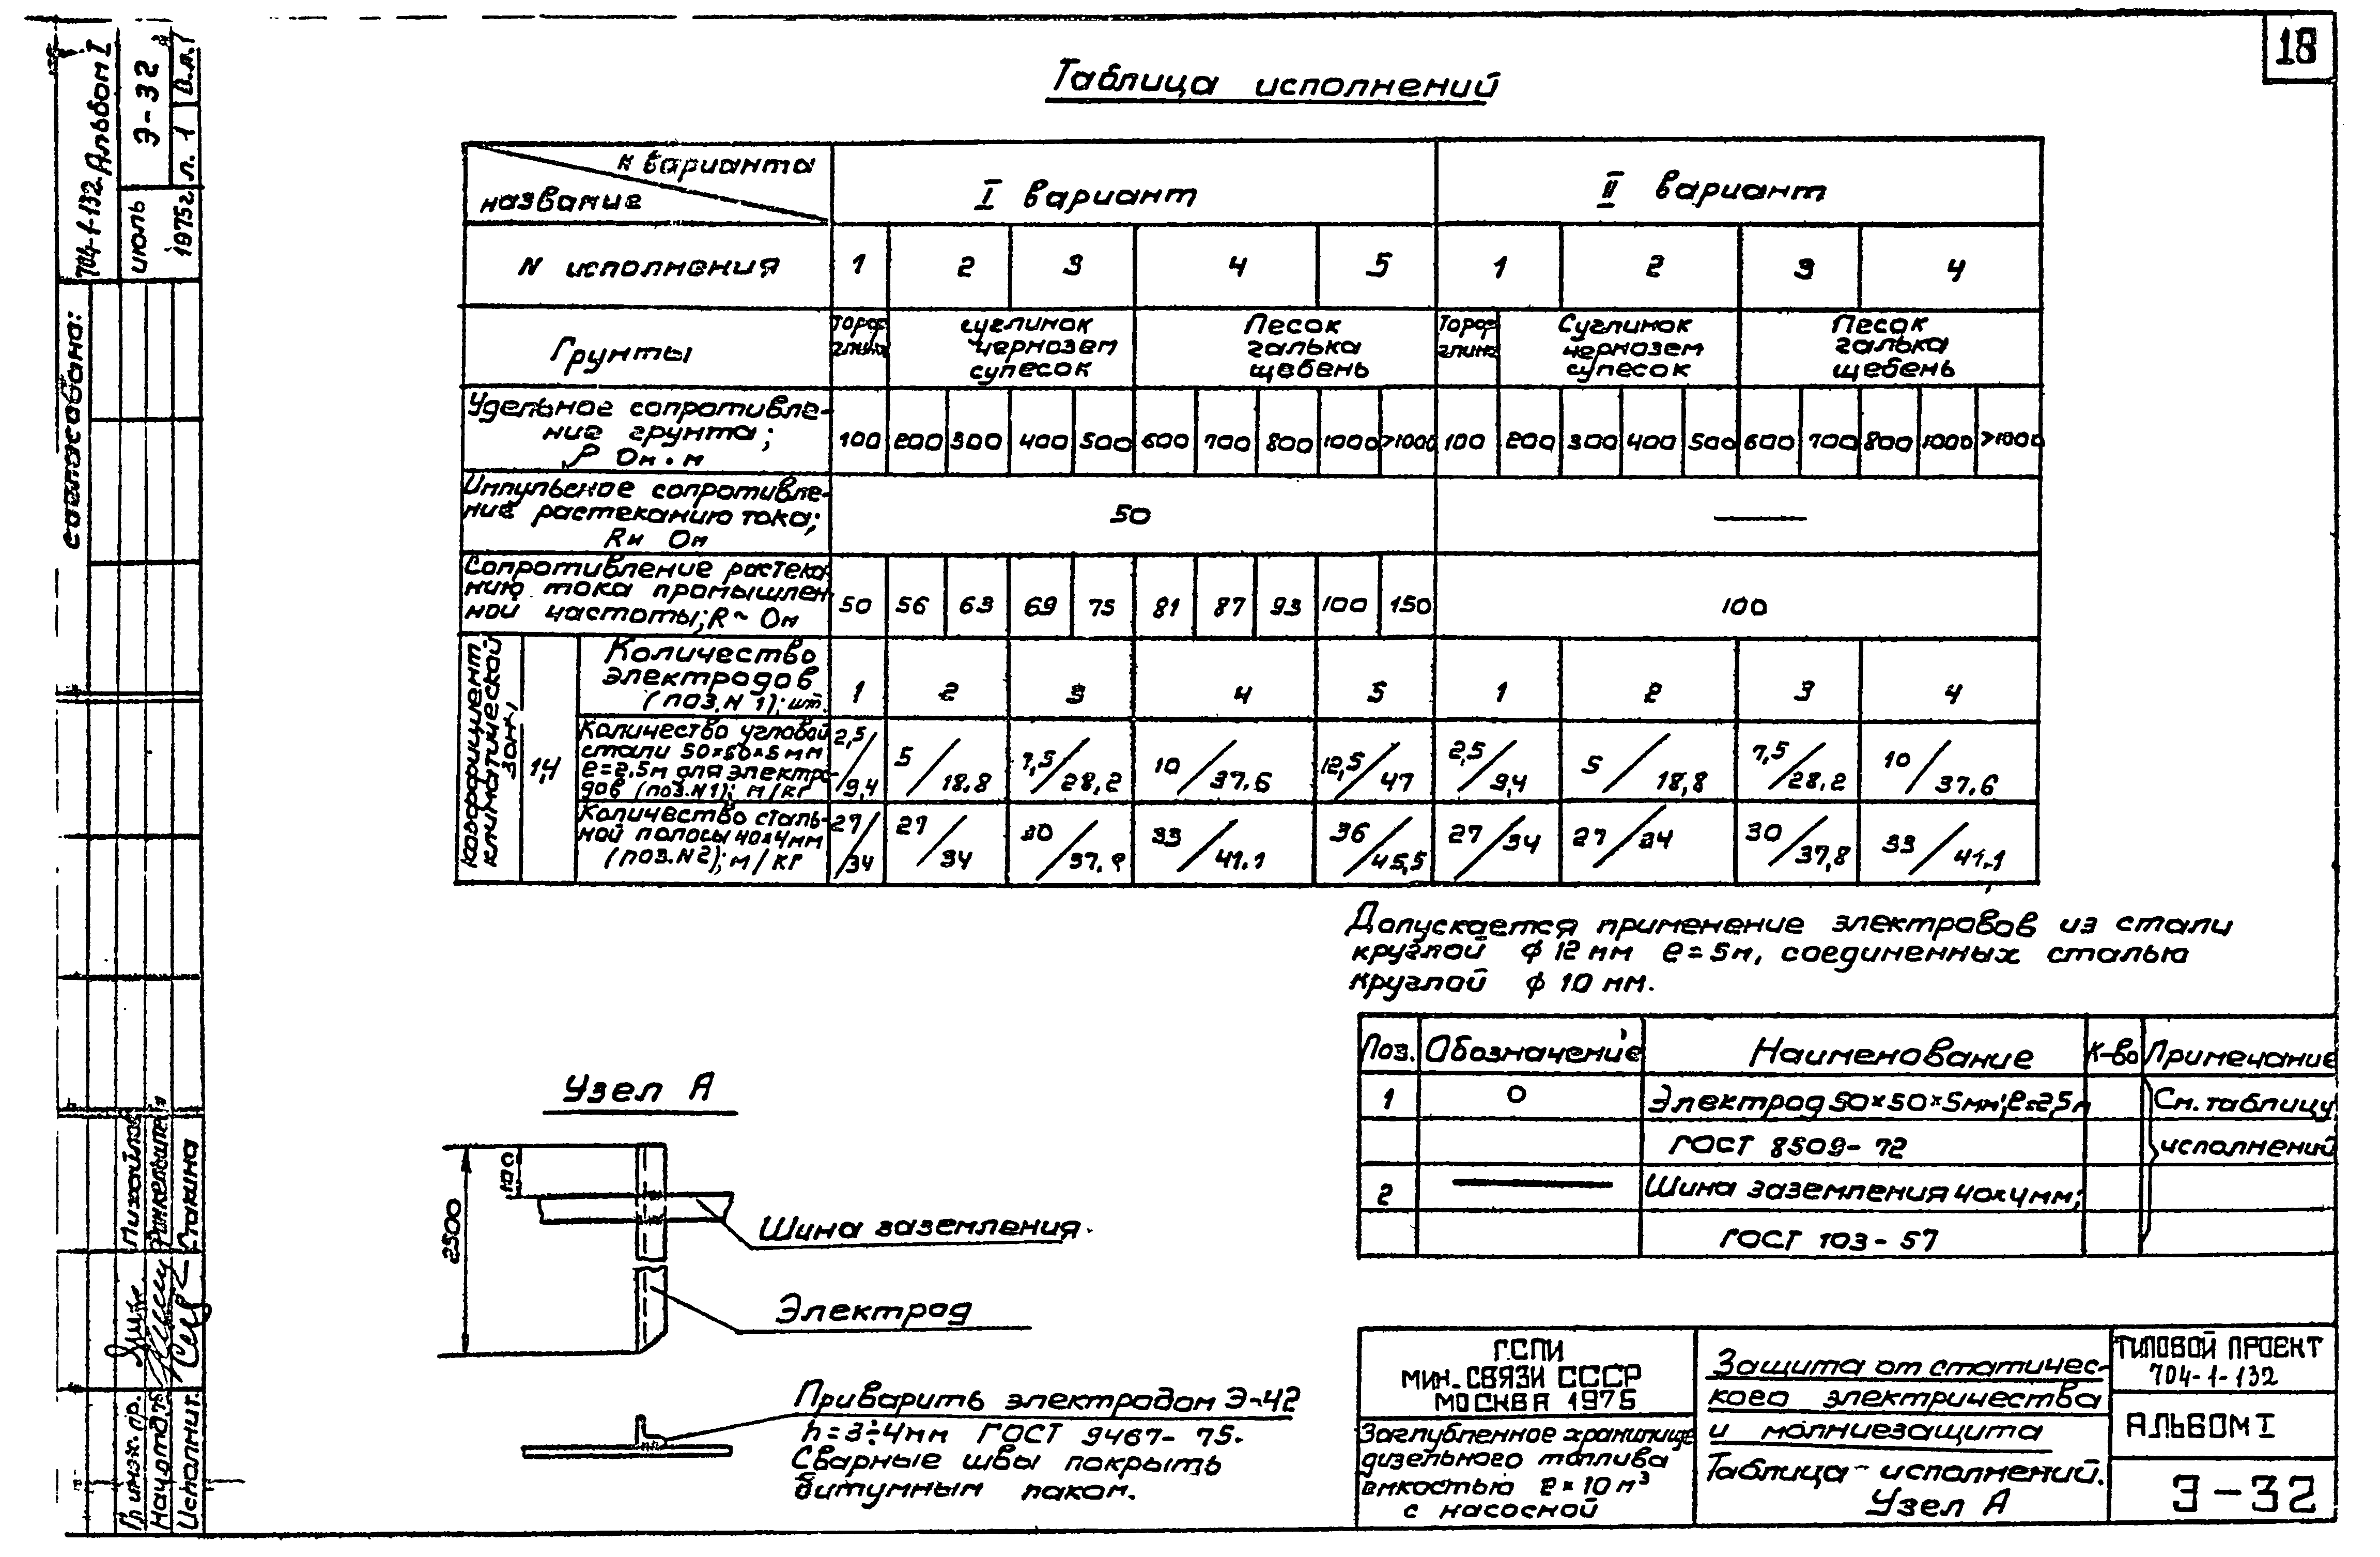 18
Таблица исполнений
N варианта
название
I вариант
II вариант
N исполнения 1 2 3 4 5 1 2 3 4
Грунты
Торф
глина
суглинок
чернозем
супесок
Песок
галька
щебень
Торф
глина
Суглинок
чернозем
супесок
Песок
галька
щебень
Удельное сопротивле-
ние грунта;
ρ Ом·м
100 200 300 400 500 600 700 800 1000 >1000 100 200 300 400 500 600 700 800 1000 >1000
Импульсное сопротивле-
ние растеканию тока;
Rи Ом
50 —
Сопротивление растека-
нию тока промышлен-
ной частоты; R~ Ом
50 56 63 69 75 81 87 93 100 150 100
Коэффициент
климатической
зоны
1,4
Количество
электродов
(поз.N 1); шт.
1 2 3 4 5 1 2 3 4
Количество угловой
стали 50×50×5 мм
ℓ=2.5м для электро-
дов (поз.N1); м/кг
2,5/9,4 5/18,8 7,5/28,2 10/37,6 12,5/47 2,5/9,4 5/18,8 7,5/28,2 10/37,6
Количество сталь-
ной полосы 40×4мм
(поз.N2); м/кг
27/34 27/34 30/37,8 33/41,1 36/45,5 27/34 27/34 30/37,8 33/41,1
Допускается применение электродов из стали
круглой ϕ 12 мм ℓ=5м, соединенных сталью
круглой ϕ 10 мм.
Поз. Обозначение Наименование К-во Примечание
1 О Электрод 50×50×5мм; ℓ=2,5м См. таблицу
ГОСТ 8509-72 исполнений
2 Шина заземления 40×4мм;
ГОСТ 103-57
Узел А
100
2500
Шина заземления.
Электрод
Приварить электродом Э-42
h=3÷4мм ГОСТ 9467-75.
Сварные швы покрыть
битумным лаком.
ГСПИ
МИН. СВЯЗИ СССР
МОСКВА 1975
Заглубленное хранилище
дизельного топлива
емкостью 2×10 м³
с насосной
Защита от статичес-
кого электричества
и молниезащита
Таблица исполнений.
Узел А
ТИПОВОЙ ПРОЕКТ
704-1-132
АЛЬБОМ I
Э-32
704-1-132. Альбом I
Э-32
июль
1975г. л. 1
Согласовано:
Гл. инж. пр. Михайлов
Нач. отд.
Исполнит.